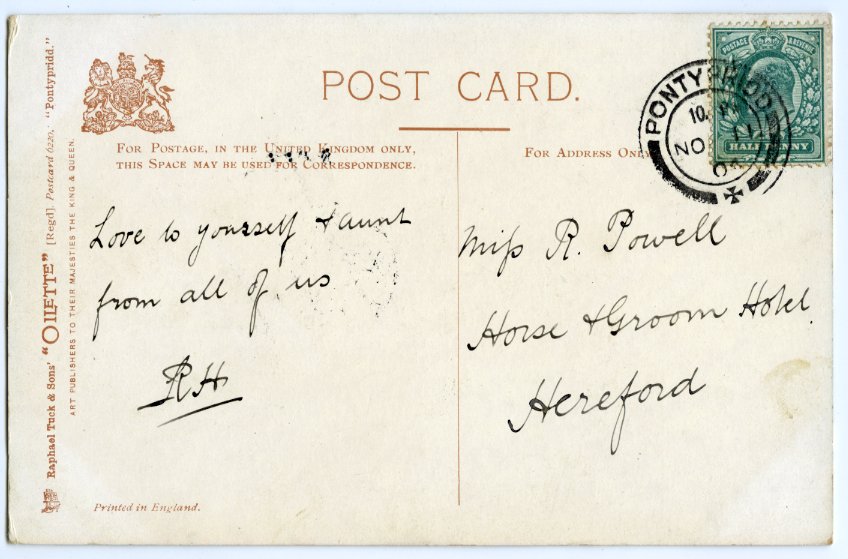 POST CARD.
FOR POSTAGE, IN THE UNITED KINGDOM ONLY,
THIS SPACE MAY BE USED FOR CORRESPONDENCE.
FOR ADDRESS ONLY
POSTAGE & REVENUE
HALFPENNY
PONTYPRIDD
10.
NO
04
Love to yourself & aunt
from all of us
RH
Miss R. Powell
Horse & Groom Hotel.
Hereford
Raphael Tuck & Sons' "OILETTE" [Regd.] Postcard 6220. "Pontypridd."
ART PUBLISHERS TO THEIR MAJESTIES THE KING & QUEEN.
Printed in England.